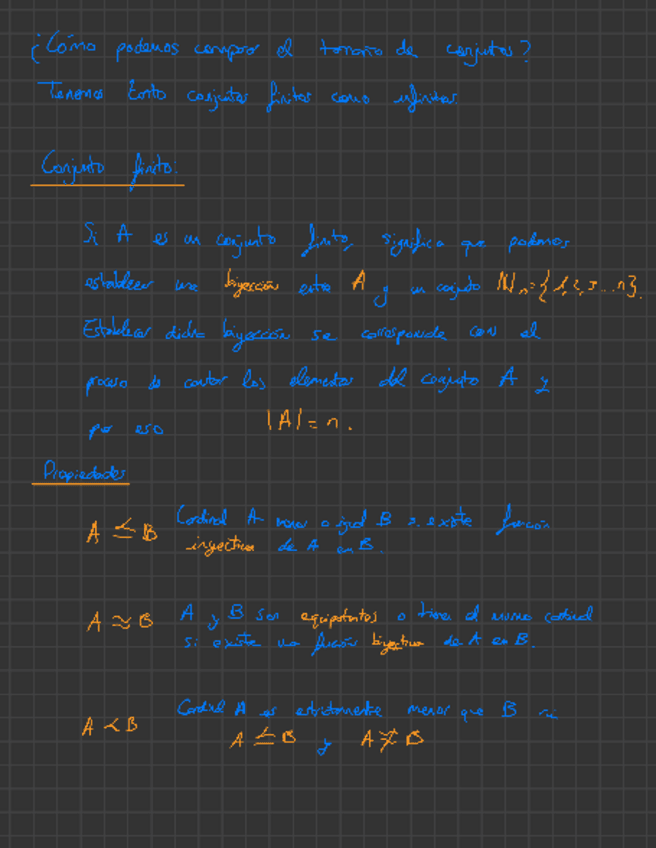 ¿Cómo podemos comparar el tamaño de conjuntos?
Tenemos tanto conjuntos finitos como infinitos.
Conjunto finito:
Si A es un conjunto finito, significa que podemos
establecer una biyección entre A y un conjunto ℕₙ={1,2,3...n}.
Establecer dicha biyección se corresponde con el
proceso de contar los elementos del conjunto A y
por eso |A| = n.
Propiedades
A ≼ B Cardinal A menor o igual B si existe función
inyectiva de A en B.
A ≈ B A y B son equipotentes o tienen el mismo cardinal
si existe una función biyectiva de A en B.
A ≺ B Cardinal A es estrictamente menor que B si
A ≼ B y A ≉ B